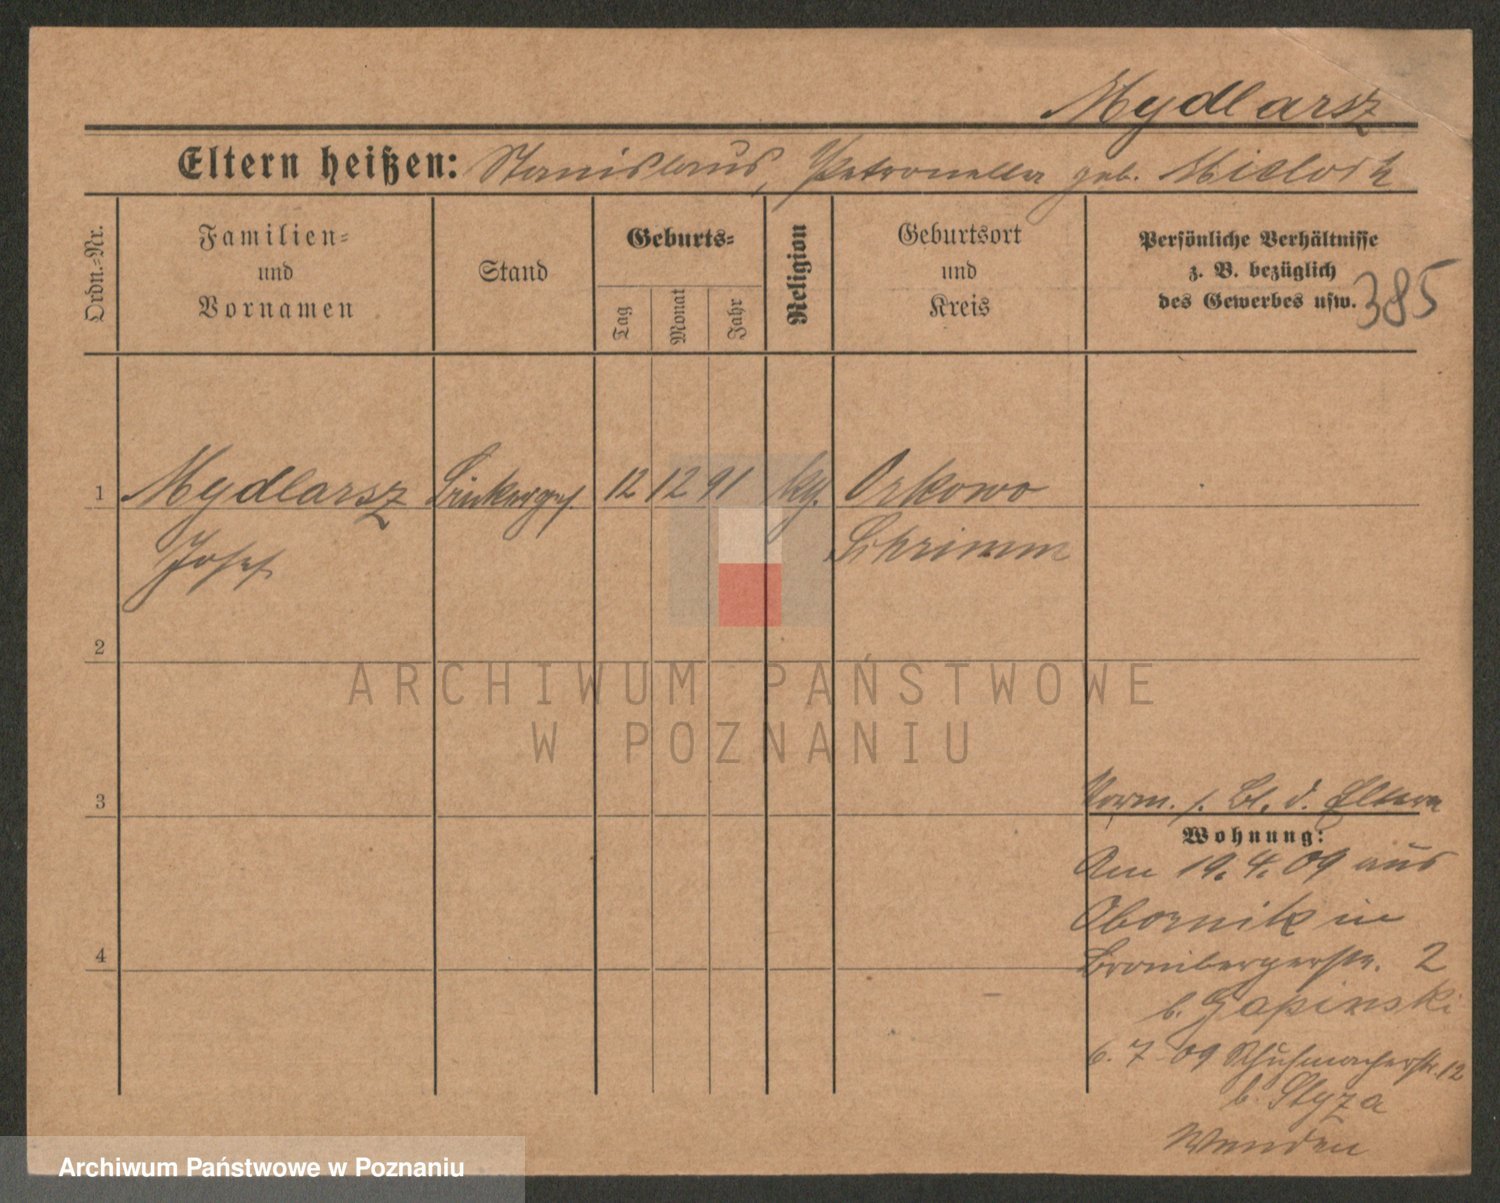 Mydlarsz
Eltern heißen: Stanislaus, Petronella geb.
Ordn.-Nr.
Familien-
und
Vornamen
Stand
Geburts-
Tag
Monat
Jahr
Religion
Geburtsort
und
Kreis
Persönliche Verhältnisse
z. B. bezüglich
des Gewerbes usw.
385
1 Mydlarsz 12 12 91 kg. Orkowo
Josef Schrimm
2
3
4
ARCHIWUM PAŃSTWOWE
W POZNANIU
Vorm. s. Bl. d. Eltern
Wohnung:
Am 19.4.09 aus
Obornik in
Brombergerstr. 2
b. Gapinski
6. 7 09 Schuhmacherstr. 12
b.
Archiwum Państwowe w Poznaniu